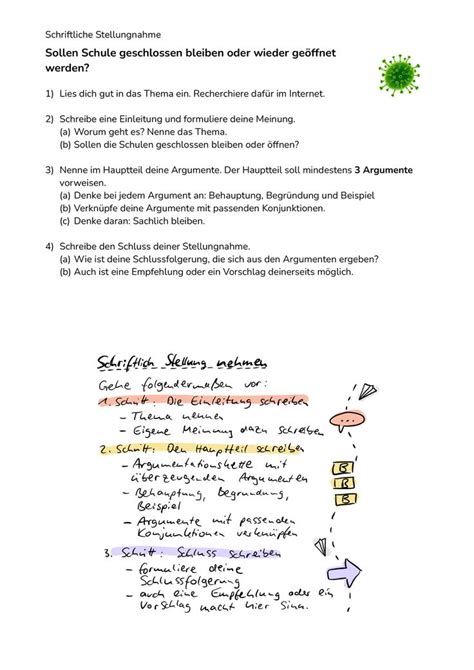 Schriftliche Stellungnahme
Sollen Schule geschlossen bleiben oder wieder geöffnet
werden?
1) Lies dich gut in das Thema ein. Recherchiere dafür im Internet.
2) Schreibe eine Einleitung und formuliere deine Meinung.
(a) Worum geht es? Nenne das Thema.
(b) Sollen die Schulen geschlossen bleiben oder öffnen?
3) Nenne im Hauptteil deine Argumente. Der Hauptteil soll mindestens 3 Argumente
vorweisen.
(a) Denke bei jedem Argument an: Behauptung, Begründung und Beispiel
(b) Verknüpfe deine Argumente mit passenden Konjunktionen.
(c) Denke daran: Sachlich bleiben.
4) Schreibe den Schluss deiner Stellungnahme.
(a) Wie ist deine Schlussfolgerung, die sich aus den Argumenten ergeben?
(b) Auch ist eine Empfehlung oder ein Vorschlag deinerseits möglich.
Schriftlich Stellung nehmen
Gehe folgendermaßen vor:
1. Schritt: Die Einleitung schreiben
- Thema nennen
- Eigene Meinung dazu schreiben
2. Schritt: Den Hauptteil schreiben
- Argumentationskette mit
überzeugenden Argumenten
- Behauptung, Begründung,
Beispiel
- Argumente mit passenden
Konjunktionen verknüpfen
B
B
B
3. Schritt: Schluss schreiben
- formuliere deine
Schlussfolgerung
- auch eine Empfehlung oder ein
Vorschlag macht hier Sinn.